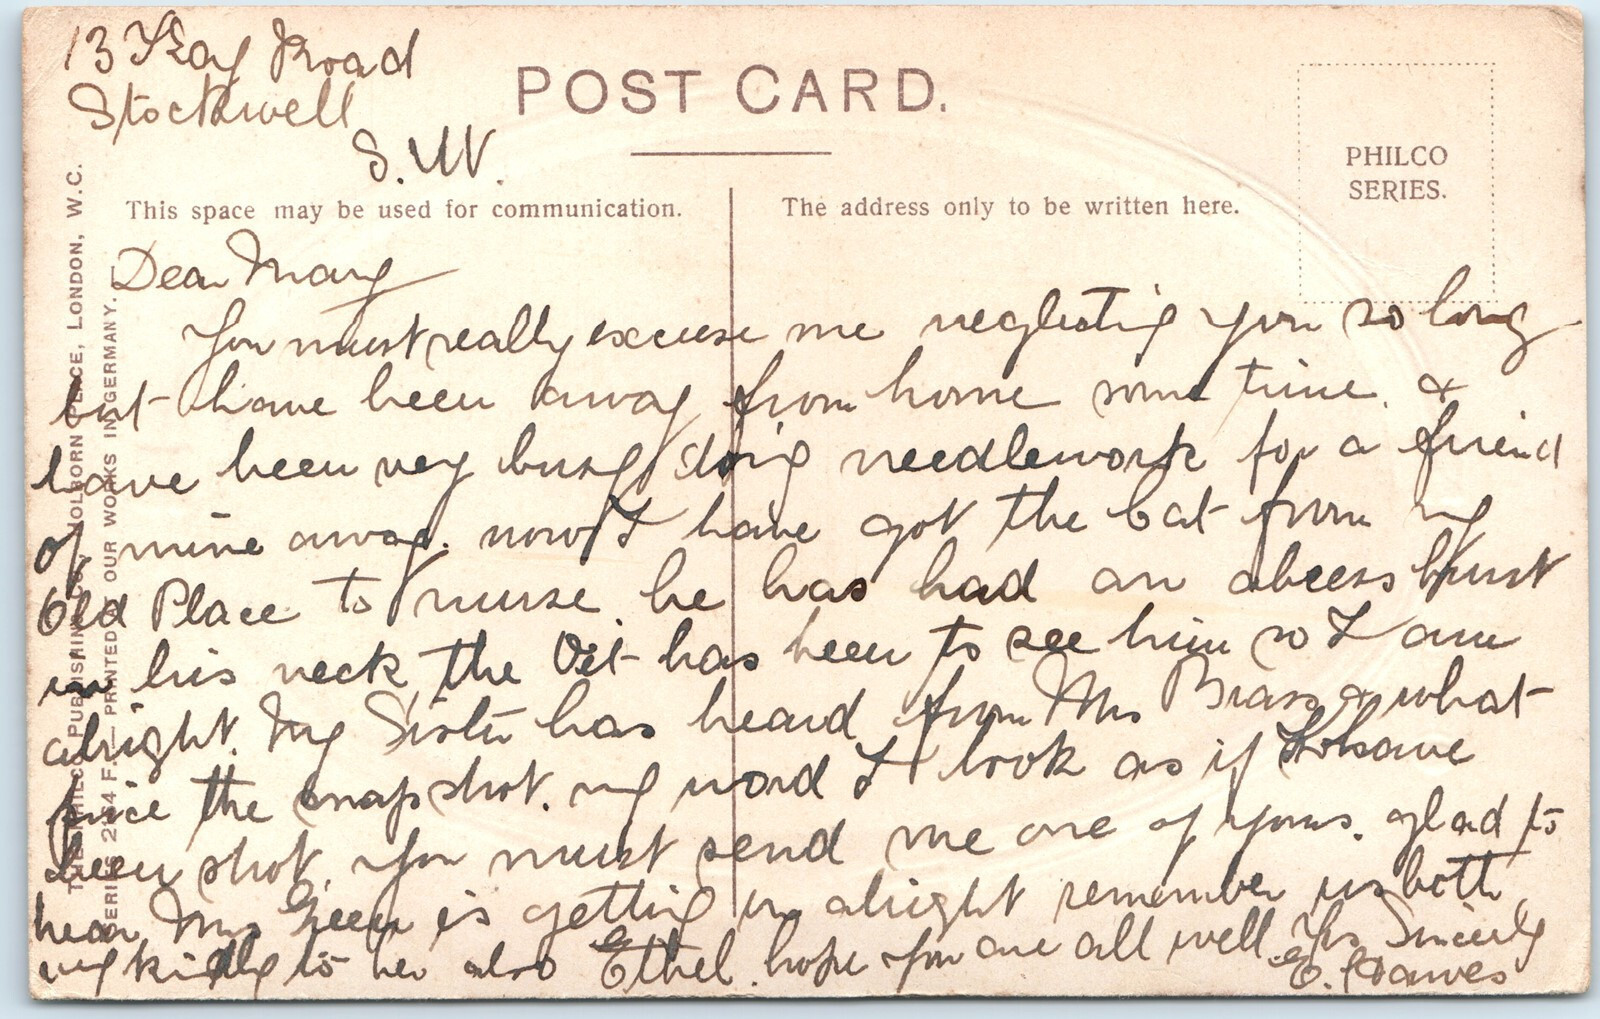 13 Kay Road
Stockwell
S.W.
POST CARD.
PHILCO
SERIES.
This space may be used for communication.
The address only to be written here.
Dear Mary
You must really excuse me neglecting you so long
but have been away from home some time. &
have been very busy doing needlework for a friend
of mine away. now I have got the Cat from my
Old Place to nurse he has had an abcess burst
in his neck the Vet has been to see him so I am
alright. My Sister has heard from Mrs Brass & what
price the snap shot. my word I look as if I have
been shot. You must send me one of yours. glad to
hear Mrs Green is getting on alright remember us both
very kindly to her also Ethel. hope you are all well. Yrs Sincerely
E. Dawes
THE PHILCO PUBLISHING CO., HOLBORN PLACE, LONDON, W.C.
SERIES 2 4 F. — PRINTED AT OUR WORKS IN GERMANY. —